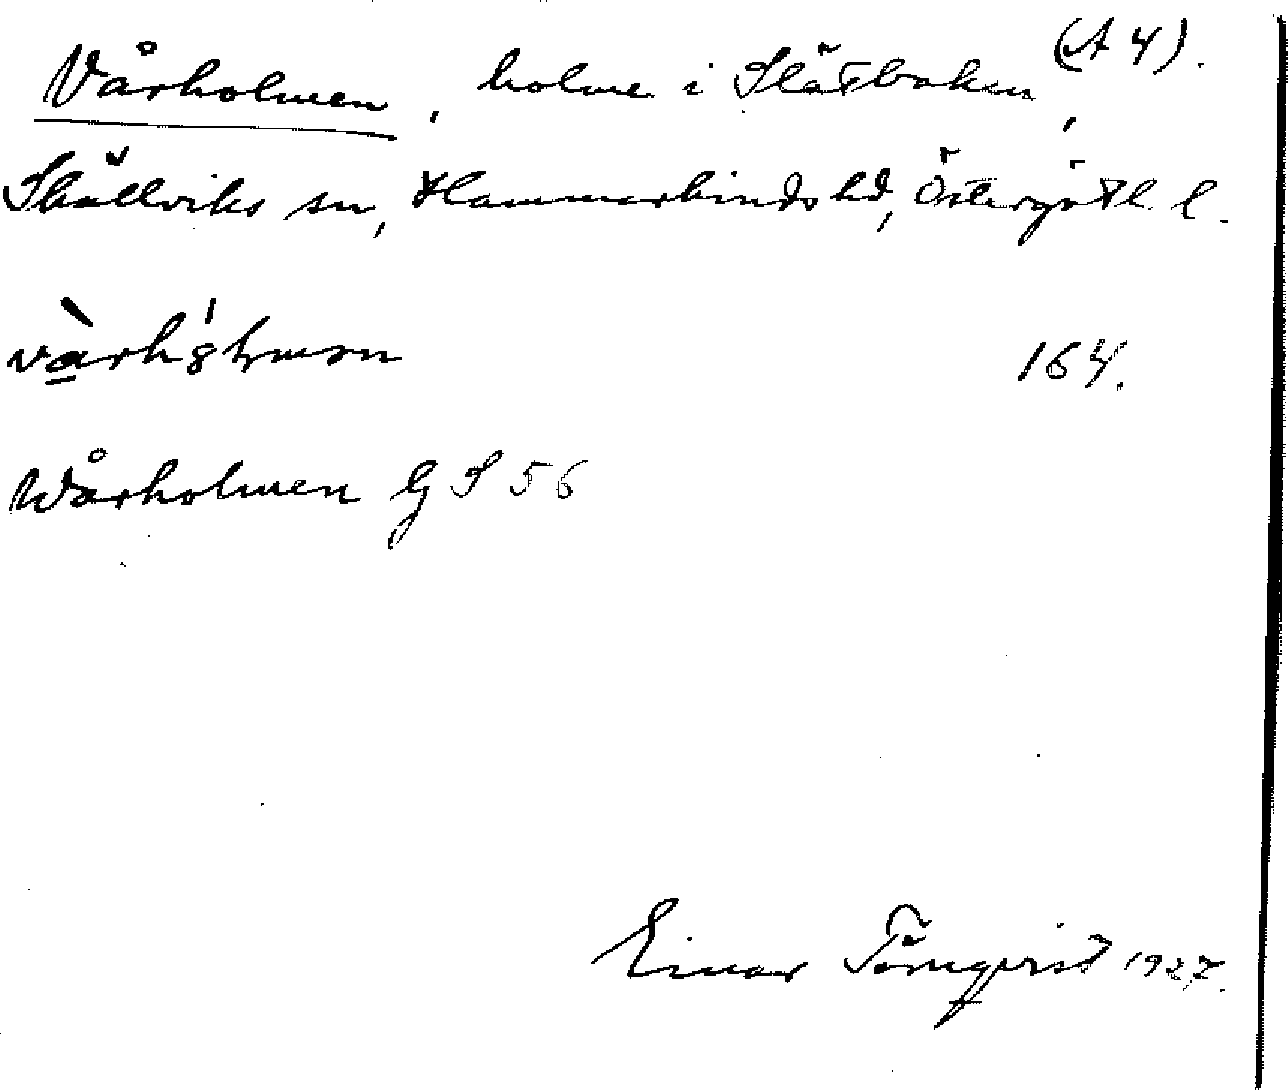 Vårholmen, holme i Slätbaken, (A 4).
Skällviks sn, Hammarkinds hd, Östergötl. l.
vàrhólmen 164.
Wårholmen GS 56
Einar Törnqvist 1927.